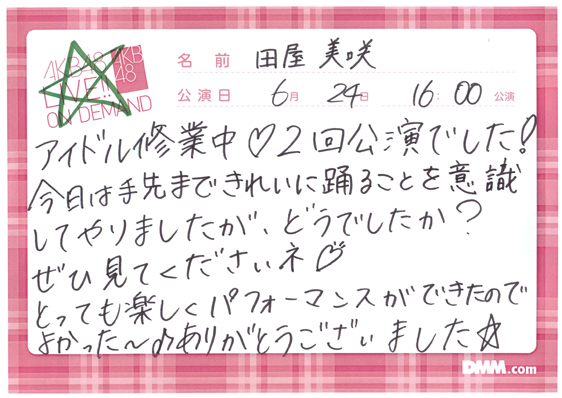 AKB48
LIVE!!
ON DEMAND
AKB
48
名前 田屋 美咲
公演日 6月 24日 16:00 公演
アイドル修業中♡2回公演でした!
今日は手先まできれいに踊ることを意識
してやりましたが、どうでしたか?
ぜひ見てくださいネ♡
とっても楽しくパフォーマンスができたので
よかった〜♪ありがとうございました☆
DMM.com